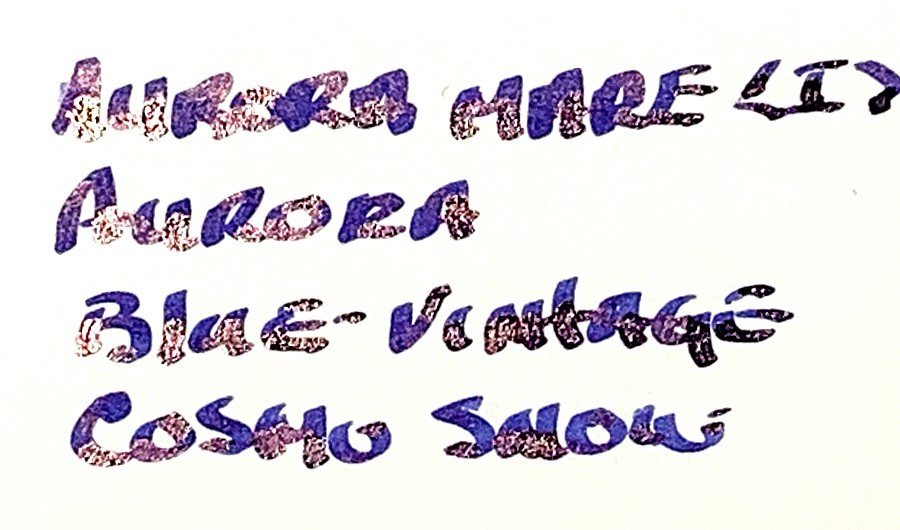 AURORA MARE (I)
AURORA
Blue-Vintage
Cosmo Snow